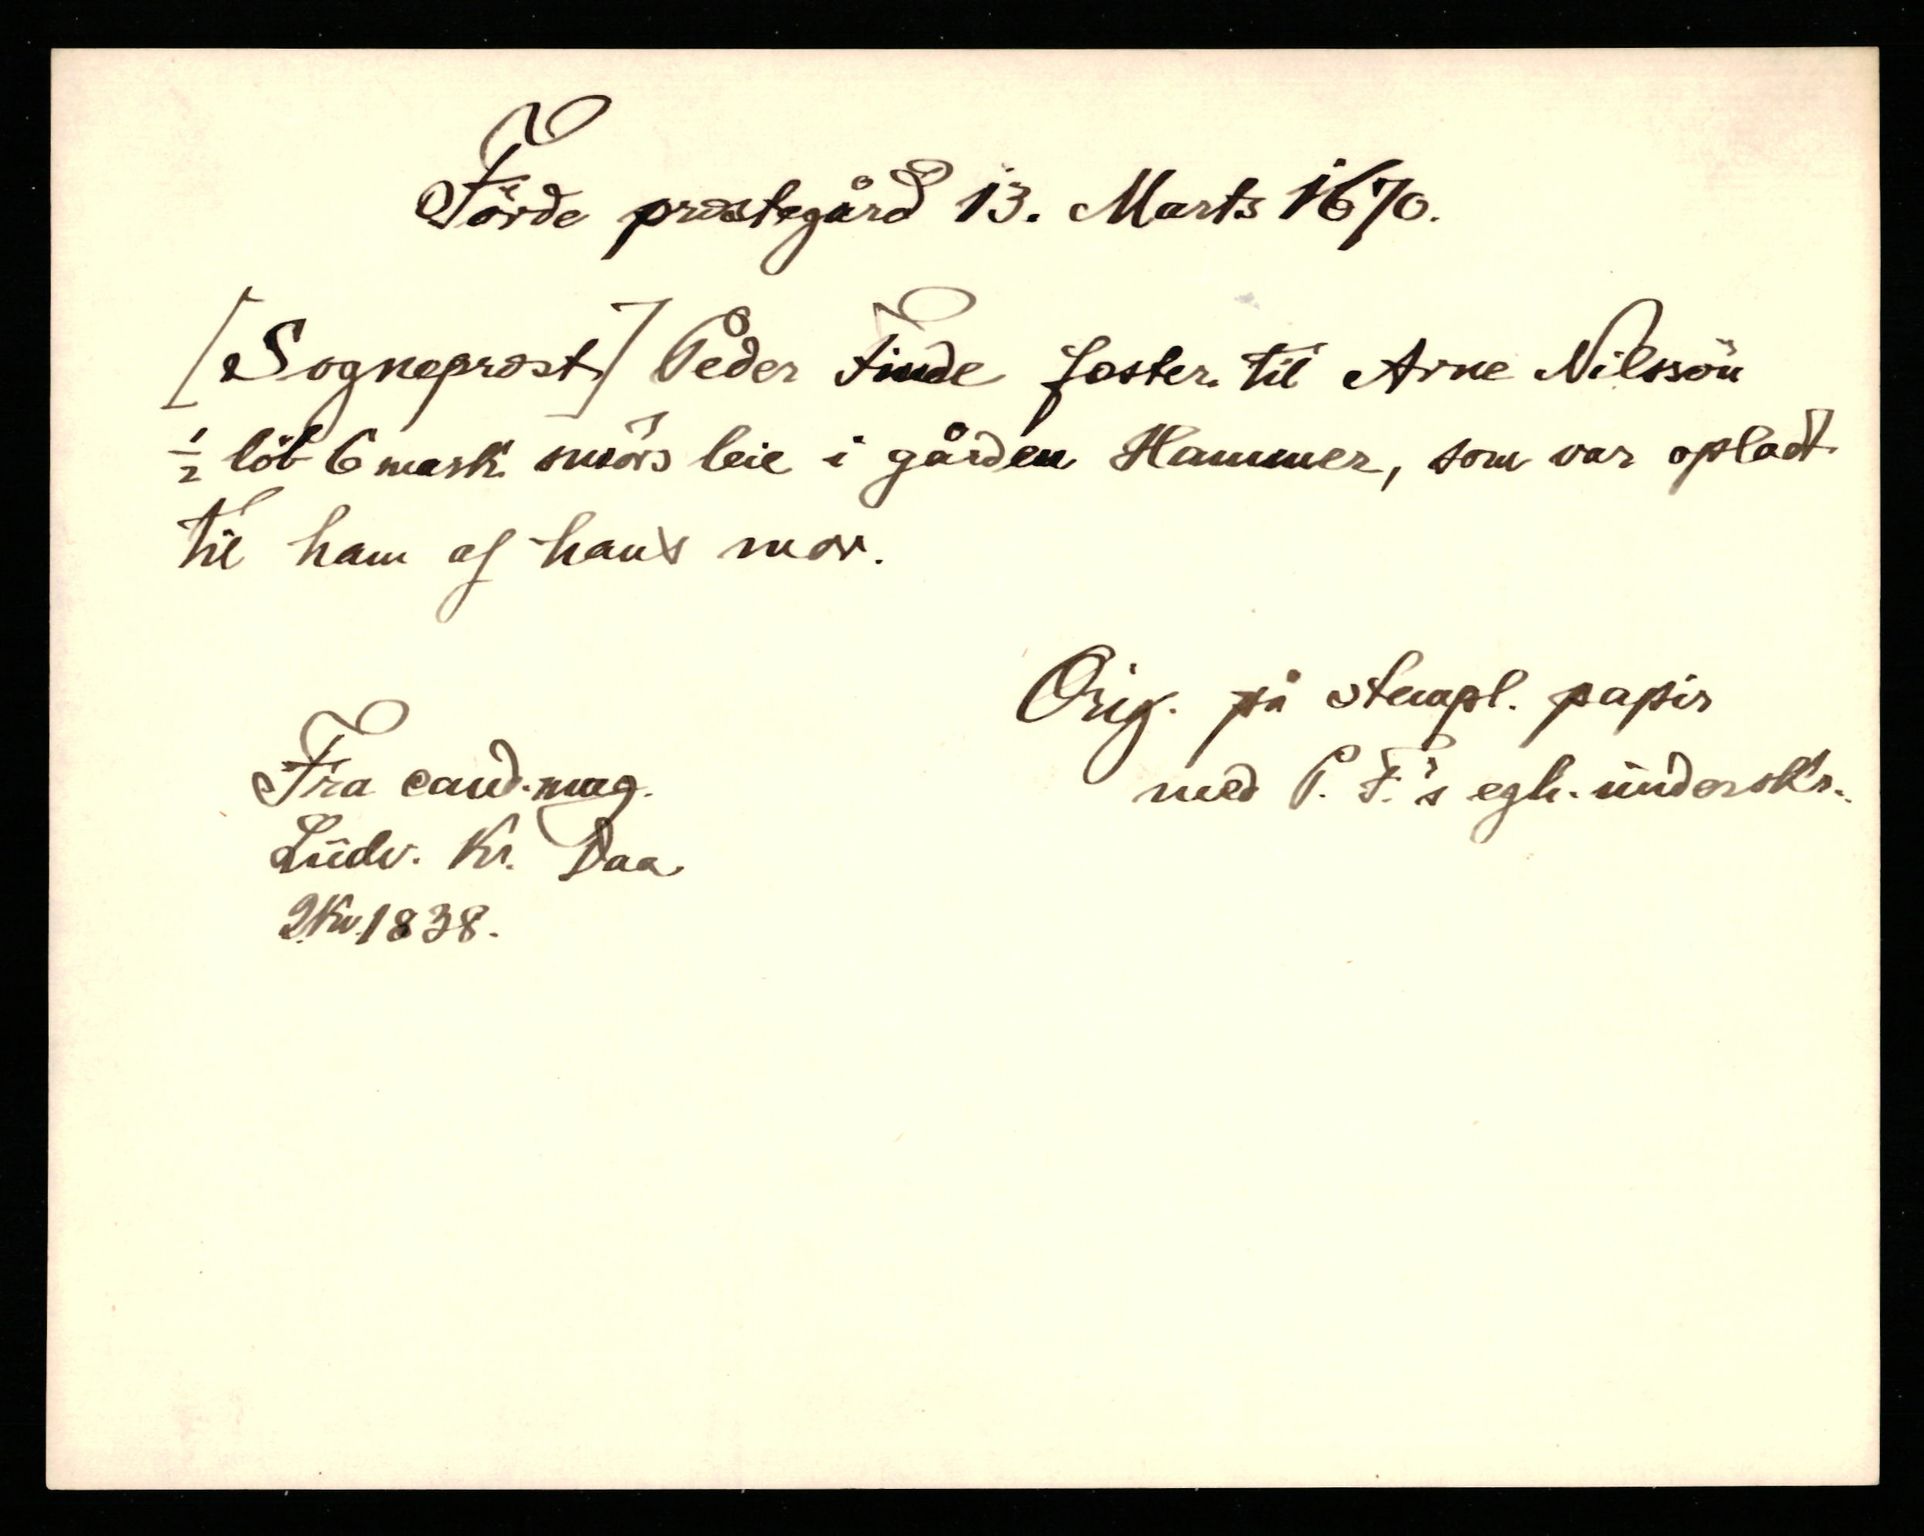 Förde præstegård 13. Marts 1670.
[Sognepræst] Peder Finde fæster til Arne Nilssön
1/2 löb 6 mark smörs leie i gården Hammer, som var opladt
til ham af hans mor.
Orig. på stempl. papir
med P. F.'s egh. underskr.
Fra cand. mag.
Ludv. Kr. Daa
2. Kv. 1838.